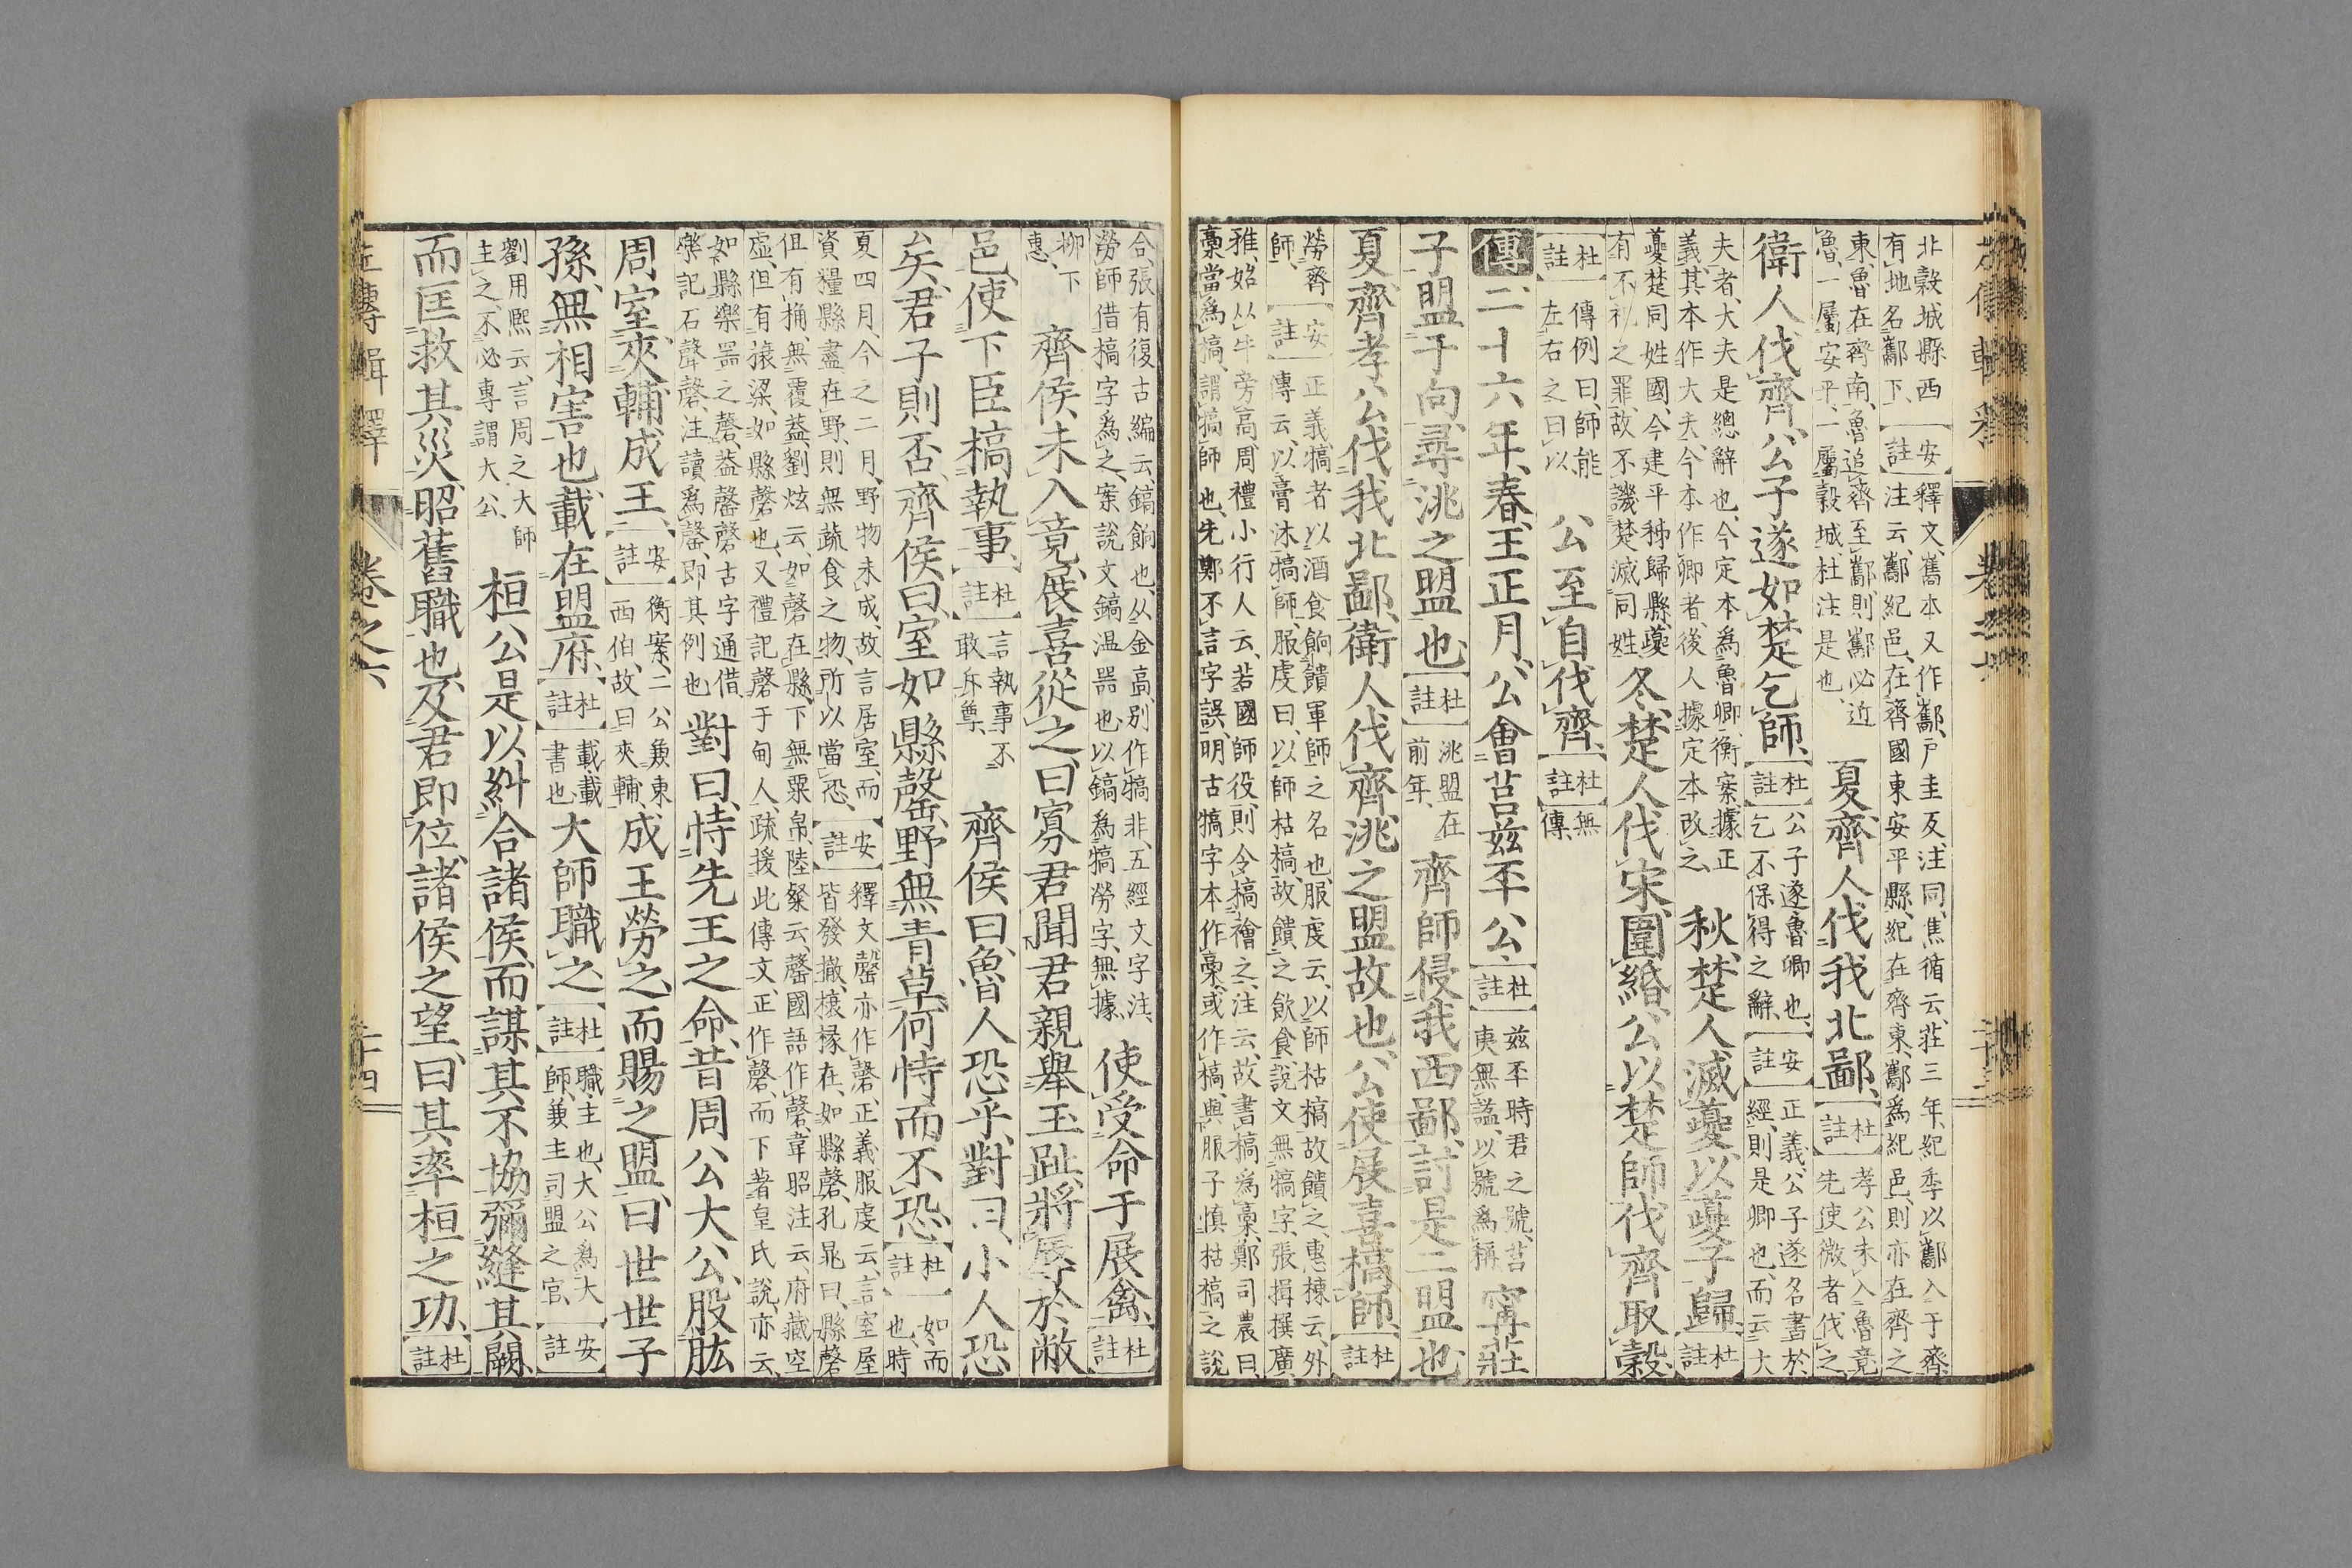 北穀城縣西
有地名酅下、
註安
釋文、舊本又作酅、戸圭反、注同、焦循云、莊三年、紀季以酅入于齊
注云、酅紀邑、在齊國東安平縣、紀在齊東、酅爲紀邑、則亦在齊之
東、魯在齊南、魯追齊至酅、則酅必近
魯、一屬安平、一屬穀城、杜注是也、
夏、齊人伐我北鄙、
註杜
孝公未入魯竟
先使微者伐之
衛人伐齊、公子遂如楚乞師、
註杜
公子遂魯卿也、
乞不保得之辭、
註安
正義、公子遂名書於
經、則是卿也、而云大
夫者、大夫是總辭也、今定本爲魯卿、衡案、據正
義、其本作大夫、今本作卿者、後人據定本改之、
秋、楚人滅夔、以夔子歸、
註杜
夔楚同姓國、今建平秭歸縣、夔
有不礼之罪、故不譏楚滅同姓
冬、楚人伐宋、圍緡、公以楚師伐齊、取穀、
註杜
傳例曰、師能
左右之曰以
公至自伐齊、
註杜
無
傳、
傳二十六年、春、王正月、公會莒玆丕公、
註杜
玆丕時君之號、莒
夷無謚、以號爲稱
甯莊
子盟于向、尋洮之盟也、
註杜
洮盟在
前年、
齊師侵我西鄙、討是二盟也、
夏、齊孝公伐我北鄙、衛人伐齊、洮之盟故也、公使展喜犒師、
註杜
勞齊
師、
註安
正義、犒者以酒食餉饋軍師之名也、服虔云、以師枯槁故饋之、惠棟云、外
傳云、以膏沐犒師、服虔曰、以師枯槁、故饋之飲食、說文無犒字、張揖撰廣
雅、始从牛旁高、周禮小行人云、若國師役、則令槁禬之、注云、故書槁爲稾、鄭司農曰、
稾當爲犒、謂犒師也、先鄭不言字誤、明古犒字本作稾、或作槁、與服子愼枯槁之說
合、張有復古編云、鎬餉也、从金高、別作犒非、五經文字注、
勞師借槁字爲之、案說文鎬温噐也、以鎬爲犒勞字、無據、
使受命于展禽、
註杜
柳下
惠、
齊侯未入竟、展喜從之、曰、寡君聞君親舉玉趾、將辱於敝
邑、使下臣犒執事、
註杜
言執事不
敢斥尊、
齊侯曰、魯人恐乎、對曰、小人恐
矣、君子則否、齊侯曰、室如縣罄、野無青草、何恃而不恐、
註杜
如而
也、時
夏四月、今之二月、野物未成、故言居室、而
資糧縣盡、在野、則無蔬食之物、所以當恐、
註安
釋文、罄亦作磬、正義服虔云、言室屋
皆發撤、榱椽在、如縣磬、孔晁曰、縣磬
但有桷、無覆蓋、劉炫云、如磬在縣、下無粟帛、陸粲云、罄國語作磬、韋昭注云、府藏空
虛、但有榱梁、如縣磬也、又禮記磬于甸人、疏援此傳文、正作磬、而下著皇氏說、亦云、
如縣樂噐之磬、蓋罄磬古字通借、
樂記石聲磬、注讀爲罄、即其例也
對曰、恃先王之命、昔周公大公、股肱
周室、夾輔成王、
註安
衡案、二公兼東
西伯、故曰夾輔、
成王勞之、而賜之盟、曰、世世子
孫、無相害也、載在盟府、
註杜
載載
書也、
大師職之、
註杜
職主也、大公爲大
師、兼主司盟之官、
註安
劉用熙云、言周之大師
主之、不必專謂大公、
桓公是以糾合諸侯、而謀其不協、彌縫其闕、
而匡救其災、昭舊職也、及君即位、諸侯之望、曰、其率桓之功、
註杜
左傳輯釋
卷之六
二十四